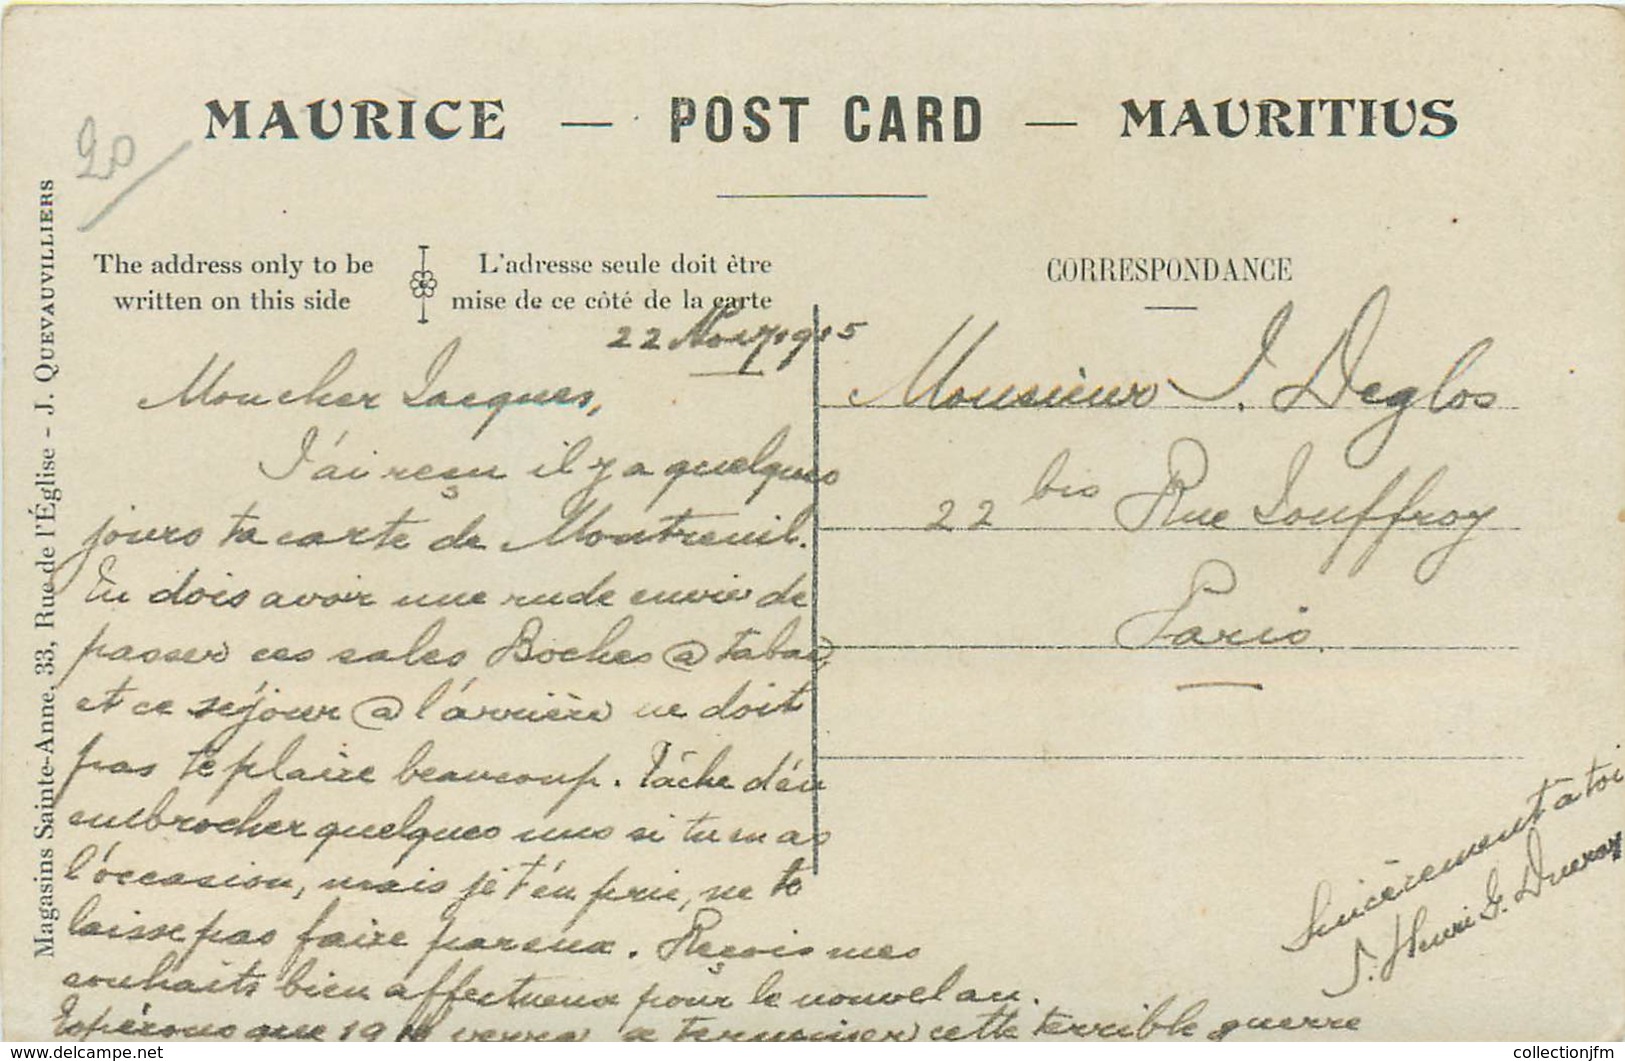 MAURICE — POST CARD — MAURITIUS
20
The address only to be
written on this side
L'adresse seule doit être
mise de ce côté de la carte
CORRESPONDANCE
Magasins Sainte-Anne, 33, Rue de l'Église - J. QUEVAUVILLIERS
22 Nov. 1915
Mon cher Jacques,
J'ai reçu il y a quelques
jours ta carte de Montreuil.
Tu dois avoir une rude envie de
passer ces sales Boches @ tabac,
et ce séjour @ l'arrière ne doit
pas te plaire beaucoup. Tâche d'en
embrocher quelques uns si tu en as
l'occasion, mais je t'en prie, ne te
laisse pas faire par eux. Reçois mes
souhaits bien affectueux pour le nouvel an.
Espérons que 1916 verra se terminer cette terrible guerre
Sincèrement à toi
J. Henri G.
Monsieur J. Deglos
22 bis Rue Jouffroy
Paris.
collectionjfm